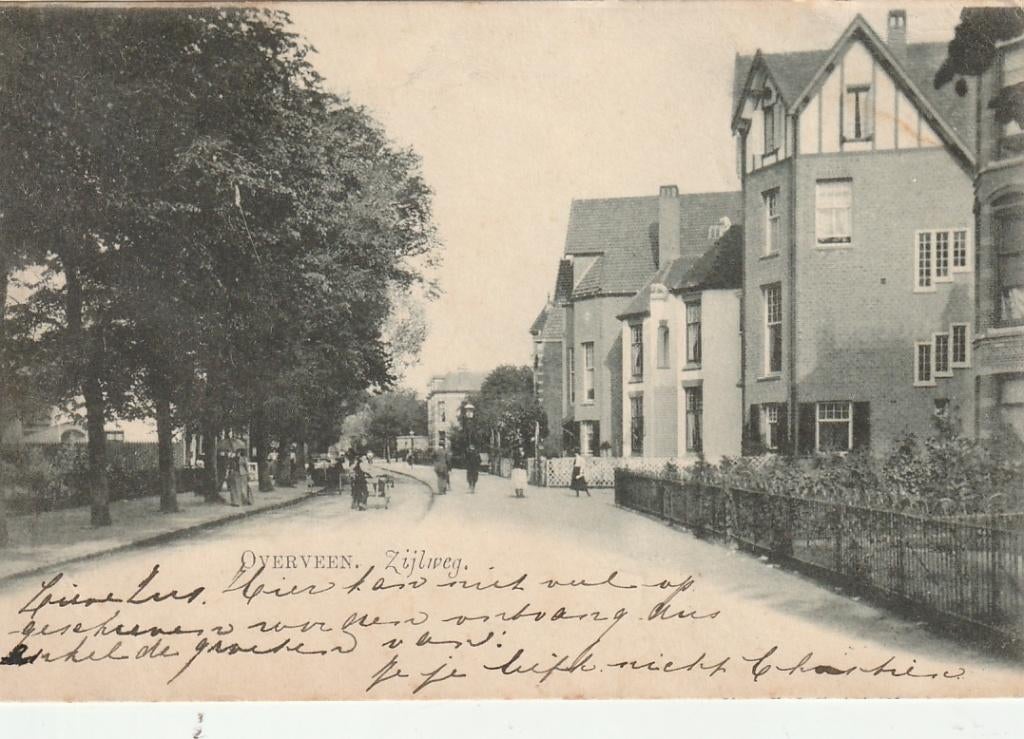 OVERVEEN. Zijlweg.
Lieve Zus. Hier kan niet veel op
geschreven worden ontvang dus
enkel de groeten van.
Je je liefh nicht Christien